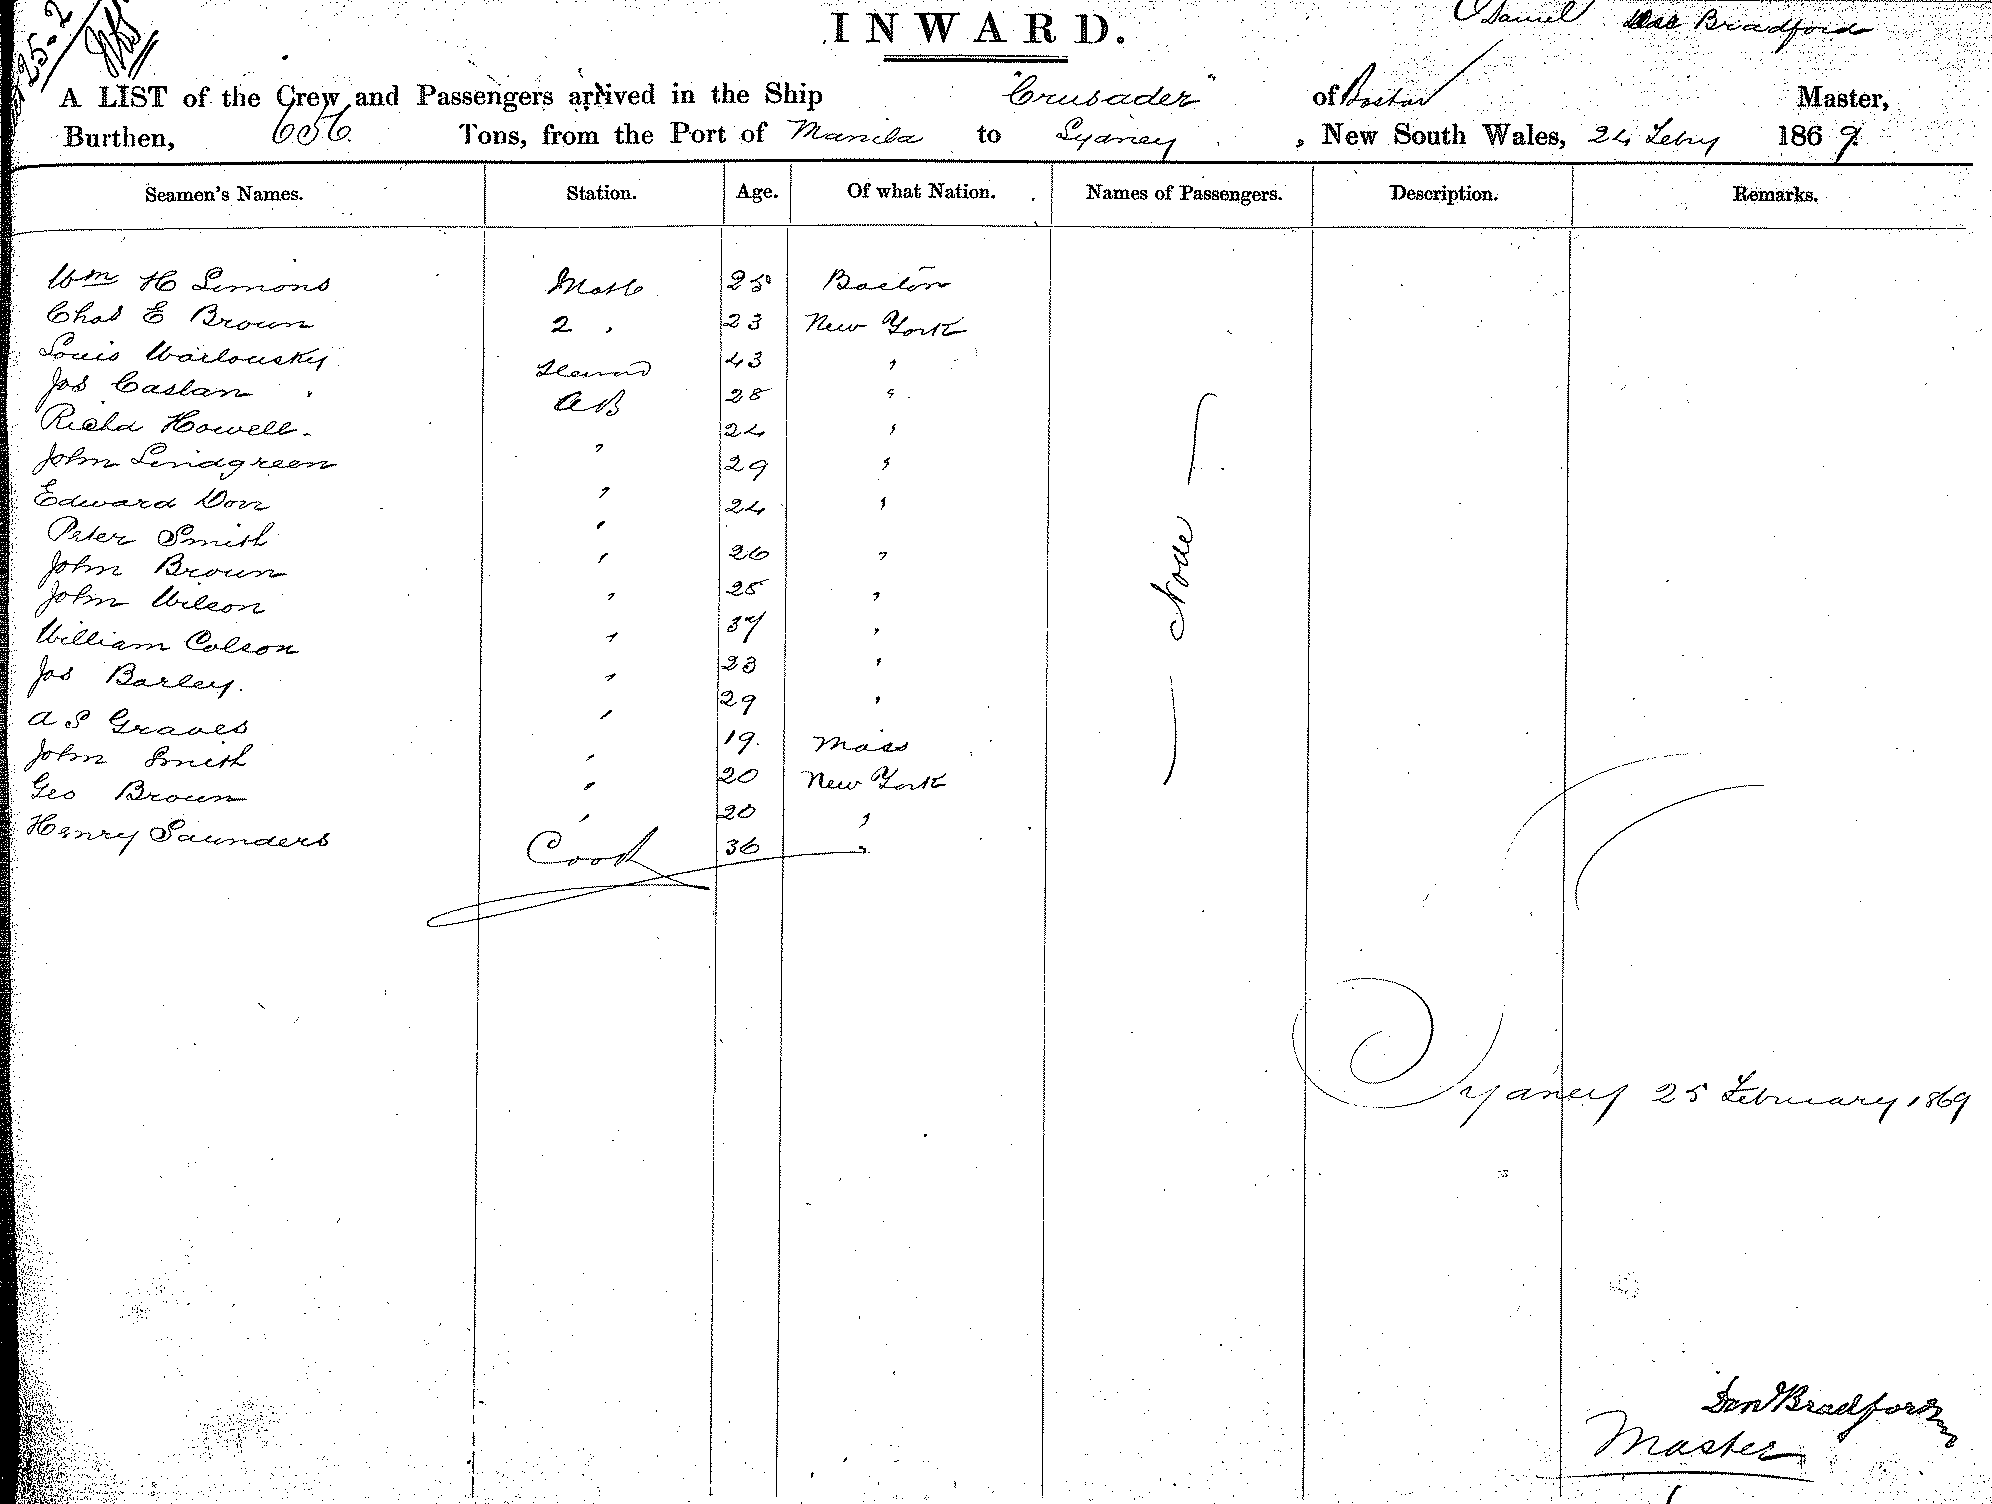 25.2
INWARD.
Daniel Bradford
A LIST of the Crew and Passengers arrived in the Ship "Crusader" of Boston Master,
Burthen, 656 Tons, from the Port of Manila to Sydney, New South Wales, 24 Febry 1869.
Seamen's Names. Station. Age. Of what Nation. Names of Passengers. Description. Remarks.
Wm H Simons Mate 25 Boston
Chas E Brown 2 , 23 New York
Louis Warlousky Steward 43 "
Jos Caslan AB 28 "
Richd Howell. " 24 "
John Lindgreen " 29 "
Edward Don " 24 "
Peter Smith " 26 "
John Brown " 25 "
John Wilson " 37 "
William Colson " 23 "
Jos Barley. " 29 "
A S Graves " 19. Mass
John Smith " 20 New York
Geo Brown " 20 "
Henry Saunders Cook 36 "
— None —
Sydney 25 February 1869
Danl Bradford
Master